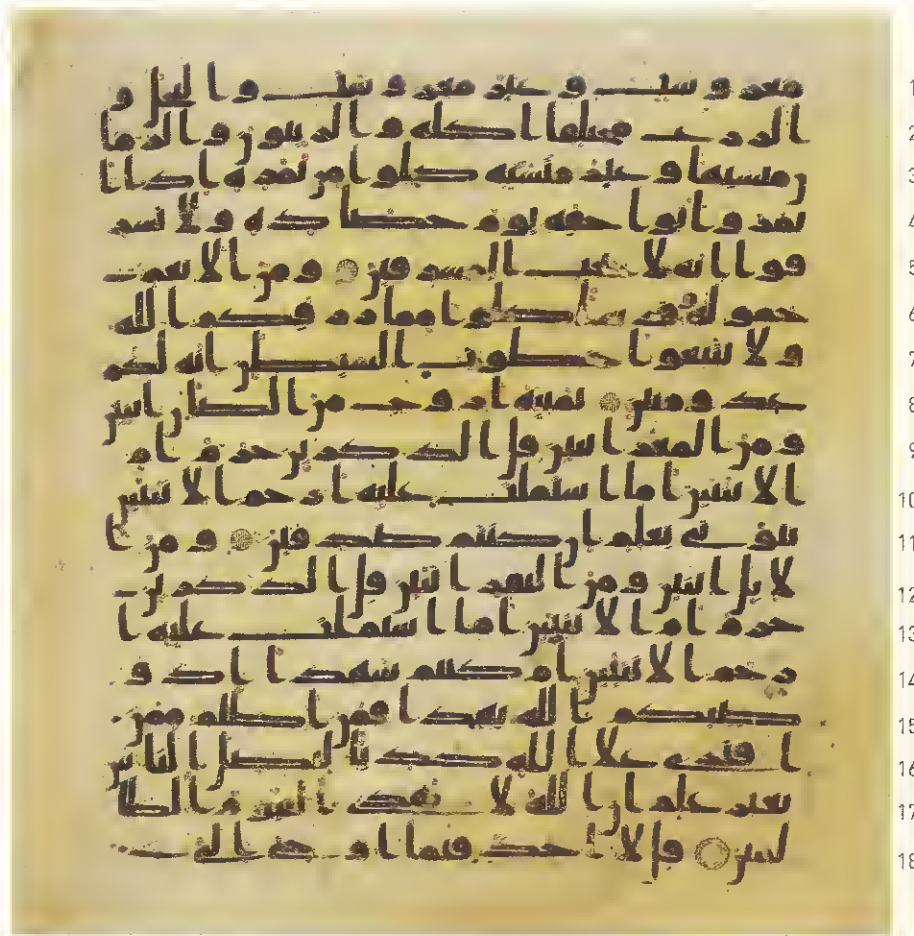 معروشت وغير معروشت والنخل و 1
الزرع مختلفا اكله والزيتون والرما 2
ن متشبها وغير متشبه كلوا من ثمره اذا ا 3
ثمر واتوا حقه يوم حصاده ولا تسر 4
فوا انه لا يحب المسرفين ومن الانعم 5
حمولة وفرشا كلوا مما رزقكم الله 6
ولا تتبعوا خطوت الشيطن انه لكم 7
عدو مبين ثمنية ازوج من الضان اثنين 8
ومن المعز اثنين قل الذكرين حرم ام 9
الانثيين اما اشتملت عليه ارحم الانثيين 10
نبوني بعلم ان كنتم صدقين ومن ا 11
لابل اثنين ومن البقر اثنين قل الذكرين 12
حرم ام الانثيين اما اشتملت عليه ا 13
رحم الانثيين ام كنتم شهدا اذ و 14
صيكم الله بهذا فمن اظلم ممن 15
افترى علا الله كذبا ليضل الناس 16
بغير علم ان الله لا يهدي القوم الظ 17
لمين قل لا اجد فيما اوحي الي 18